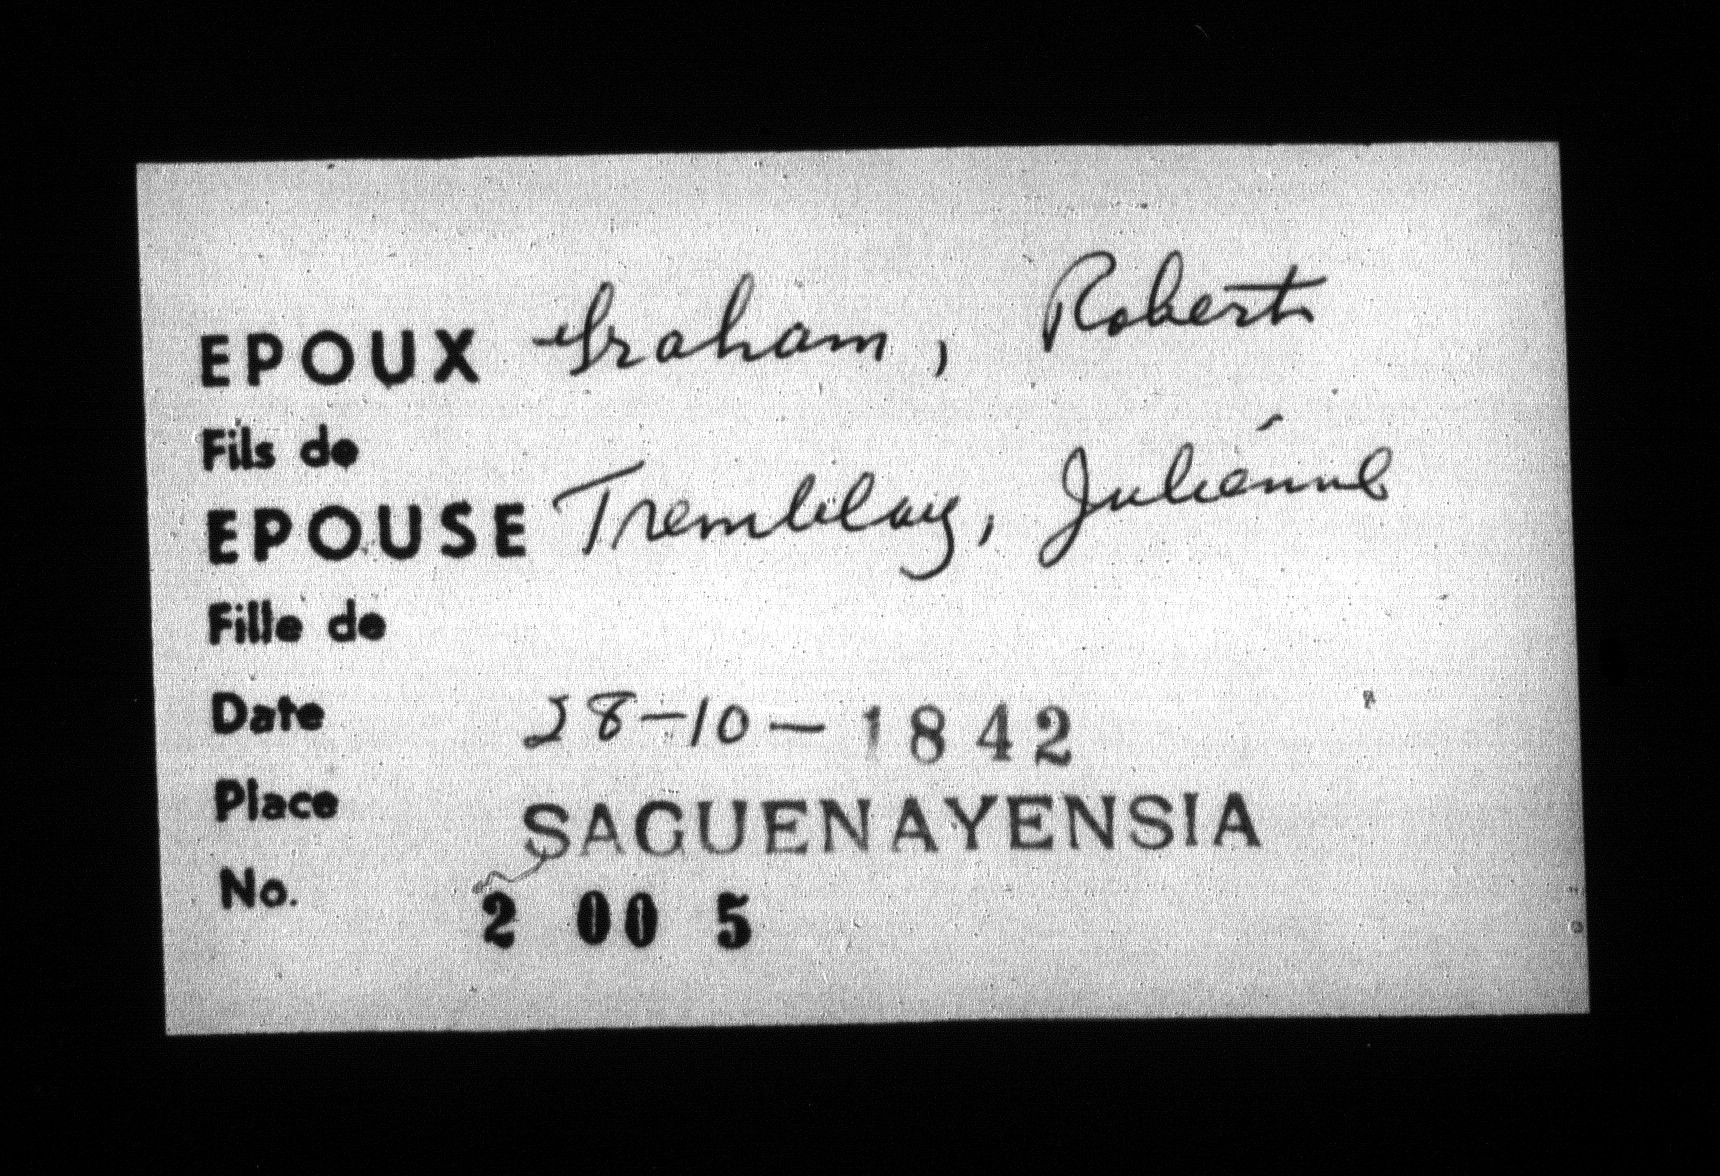 EPOUX Graham, Robert
Fils de
EPOUSE Tremblay, Juliénne
Fille de
Date 28-10-1842
Place SAGUENAYENSIA
No. 2 00 5